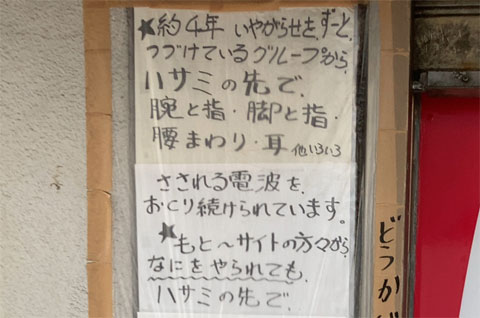 ★約4年 いやがらせを、ずーと、
つづけているグループから、
ハサミの先で、
腕と指・脚と指・
腰まわり・耳 他いろいろ
さされる電波を、
おくり続けられています。
★もと〜サイトの方々から、
なにをやられても、
ハサミの先で、
どうか